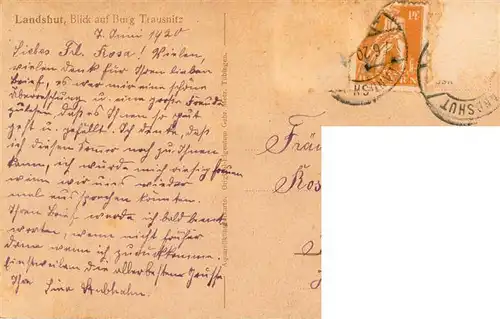 Landshut, Blick auf Burg Trausnitz
7. Juni 1920
Liebes Frl. Rosa! Vielen,
vielen Dank für Ihren lieben
Brief, es war mir eine schöne
Überraschung u. eine große Freude
zu lesen, daß es Ihnen so gut
geht u. gefällt. Ich denke, daß
ich diesen Sommer noch zu Ihnen
kann, ich würde mich riesig freuen
wenn wir uns wieder
mal aussprechen könnten.
Ihren Brief werde ich bald beant
worten, wenn nicht früher
dann wenn ich zurückkomme.
Einstweilen die allerbesten Grüsse
Ihre
PF
LANDSHUT
Fräu
Ros